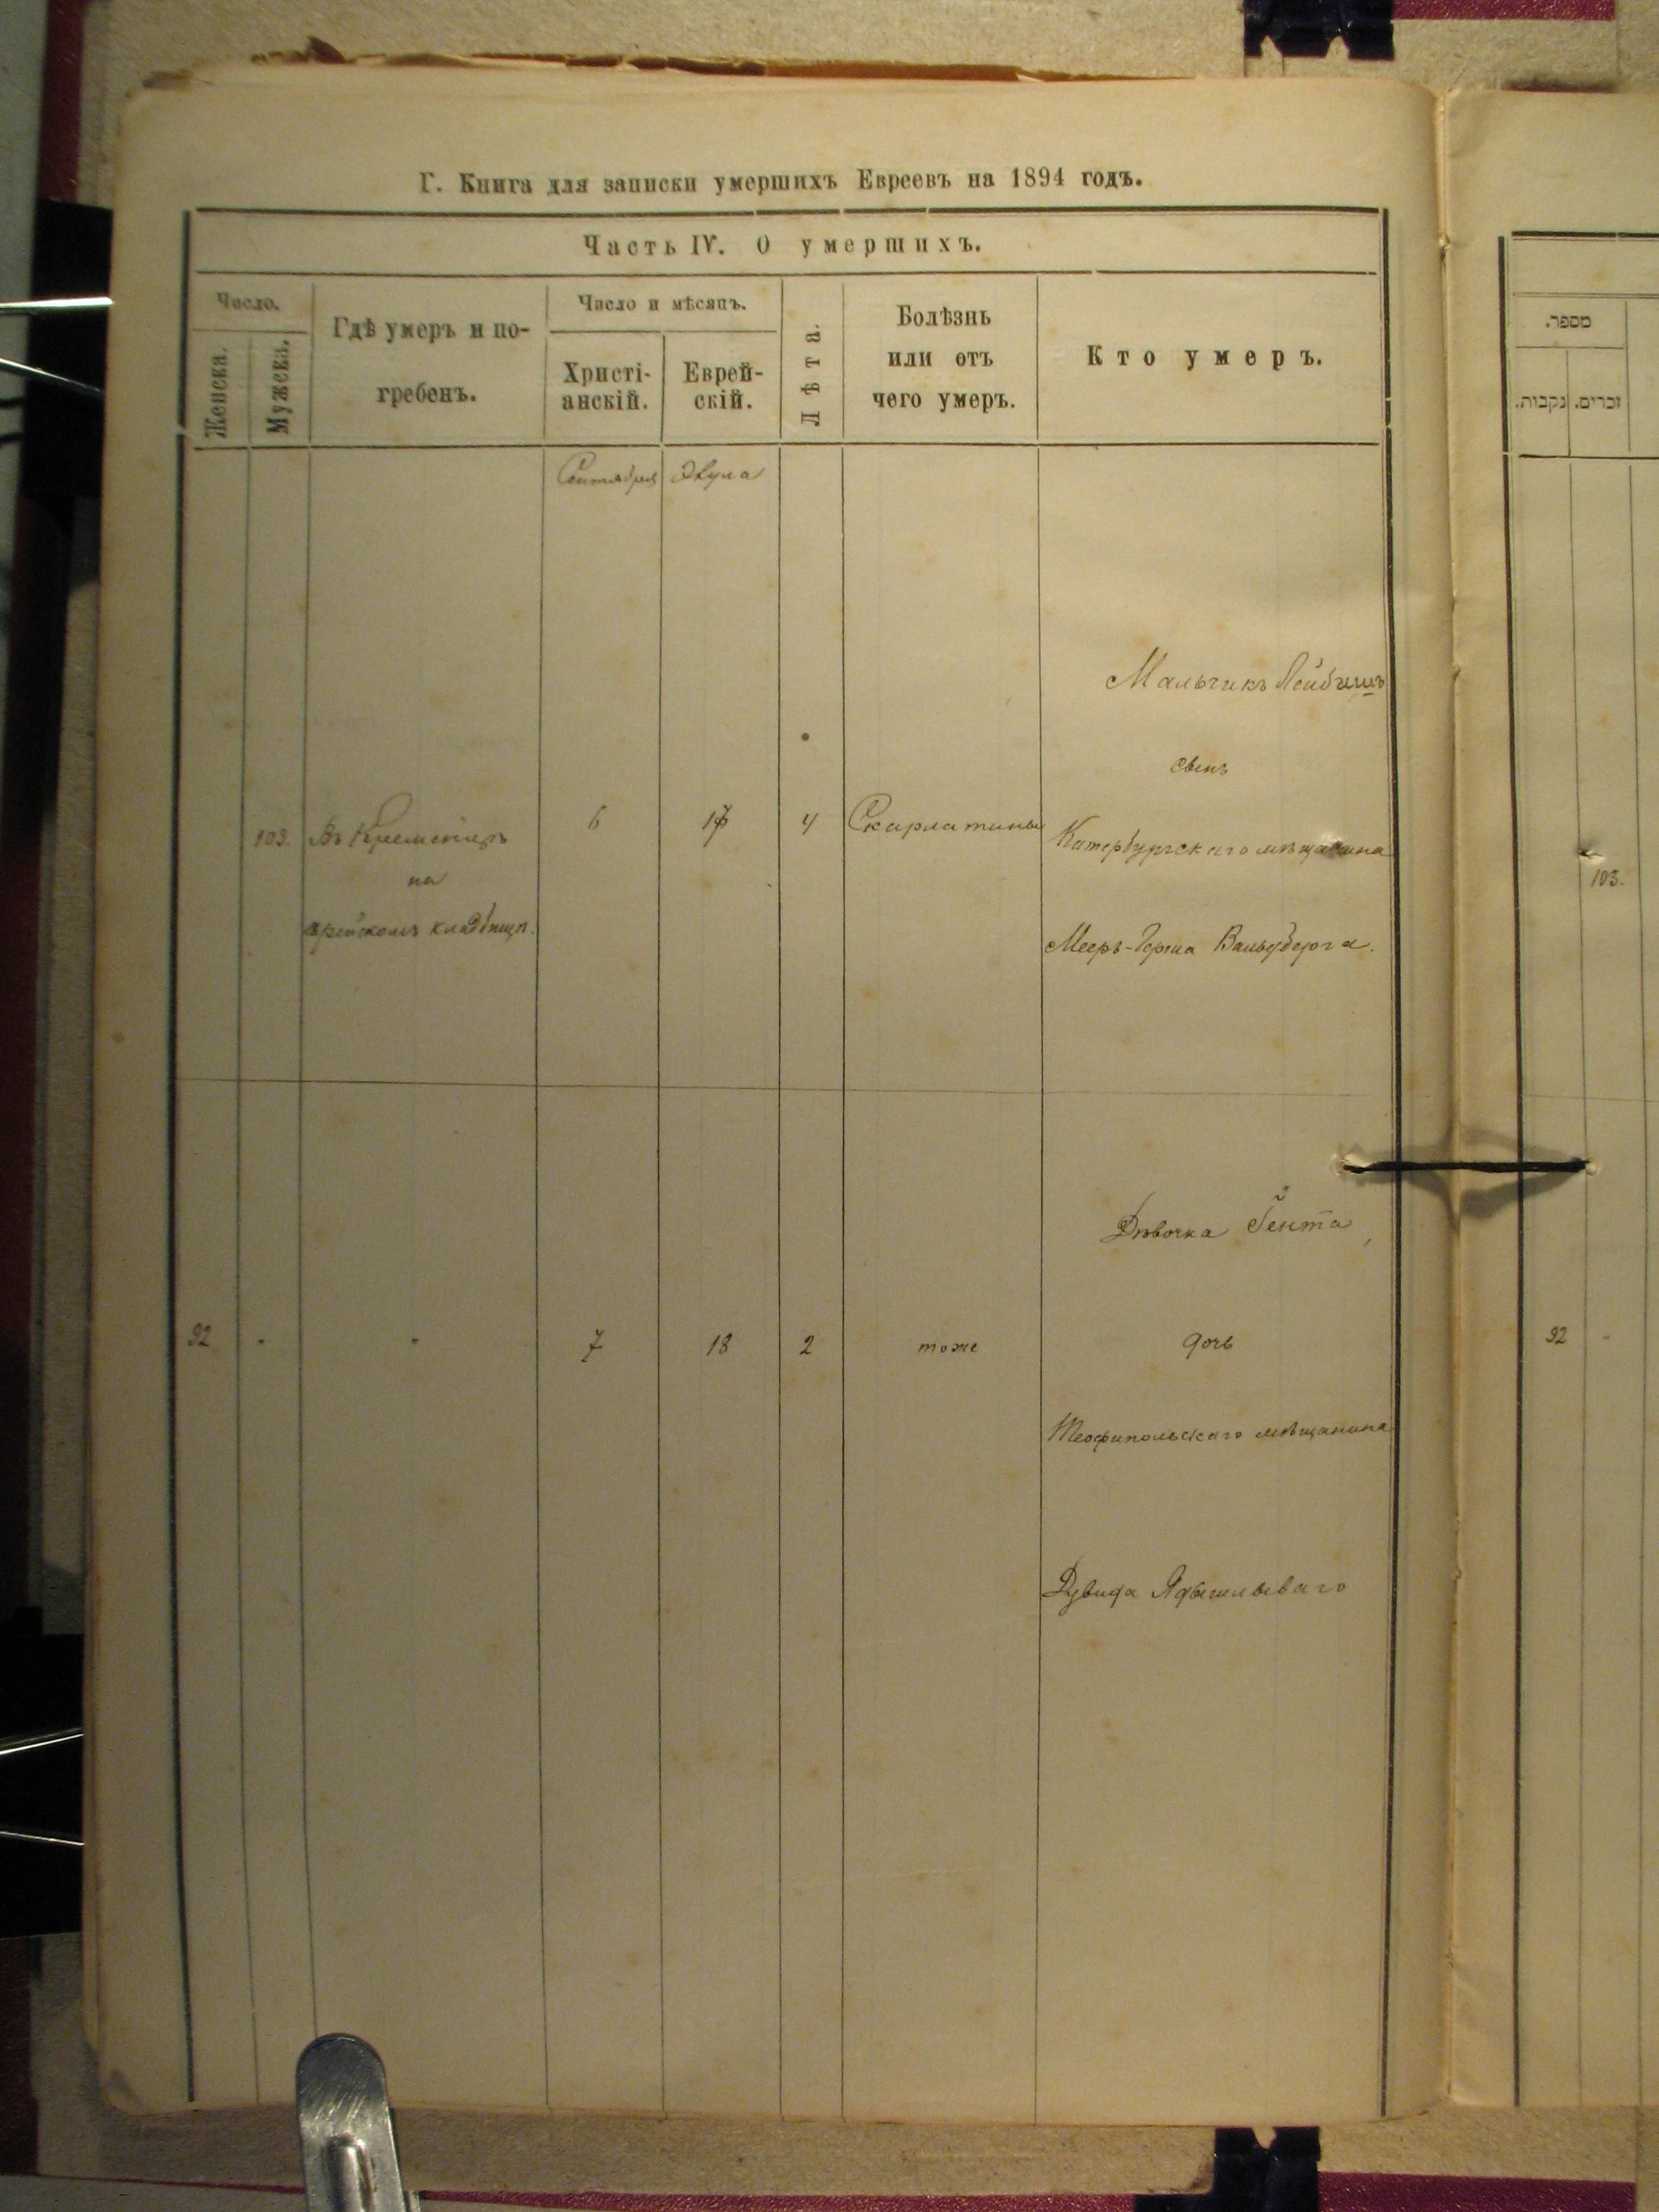 Г. Книга для записки умершихъ Евреевъ на 1894 годъ.
Часть IV. О умершихъ.
Число.
Женска.
Мужска.
Гдѣ умеръ и по-
гребенъ.
Число и мѣсяцъ.
Христі-
анскій.
Еврей-
скій.
Лѣта.
Болѣзнь
или отъ
чего умеръ.
Кто умеръ.
Сентября
Элула
Мальчикъ Лейбишъ
сынъ
103.
Въ Кременцѣ
на
кладбищѣ.
6
17
4
Скарлатины
Катербургскаго мѣщанина
Мееръ-Герша
Дѣвочка Гента,
92
-
-
7
18
2
тоже
дочь
Теофипольскаго мѣщанина
Дувида
מספר.
נקבות.
זכרים.
103.
92
-